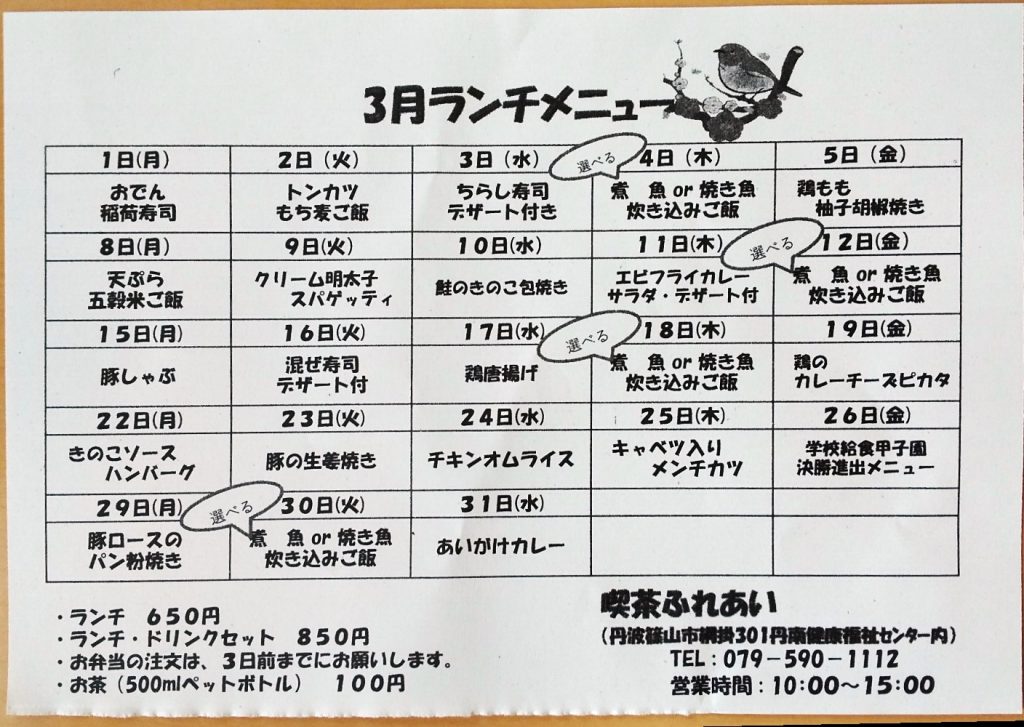 3月ランチメニュー
1日(月) 2日(火) 3日(水) 選べる 4日(木) 5日(金)
おでん トンカツ ちらし寿司 煮 魚 or 焼き魚 鶏もも
稲荷寿司 もち麦ご飯 デザート付き 炊き込みご飯 柚子胡椒焼き
8日(月) 9日(火) 10日(水) 11日(木) 選べる 12日(金)
天ぷら クリーム明太子 鮭のきのこ包焼き エビフライカレー 煮 魚 or 焼き魚
五穀米ご飯 スパゲッティ サラダ・デザート付 炊き込みご飯
15日(月) 16日(火) 17日(水) 選べる 18日(木) 19日(金)
豚しゃぶ 混ぜ寿司 鶏唐揚げ 煮 魚 or 焼き魚 鶏の
デザート付 炊き込みご飯 カレーチーズピカタ
22日(月) 23日(火) 24日(水) 25日(木) 26日(金)
きのこソース 豚の生姜焼き チキンオムライス キャベツ入り 学校給食甲子園
ハンバーグ メンチカツ 決勝進出メニュー
29日(月) 選べる 30日(火) 31日(水)
豚ロースの 煮 魚 or 焼き魚 あいがけカレー
パン粉焼き 炊き込みご飯
・ランチ 650円
・ランチ・ドリンクセット 850円
・お弁当の注文は、3日前までにお願いします。
・お茶(500mlペットボトル) 100円
喫茶ふれあい
(丹波篠山市網掛301丹南健康福祉センター内)
TEL:079-590-1112
営業時間:10:00~15:00